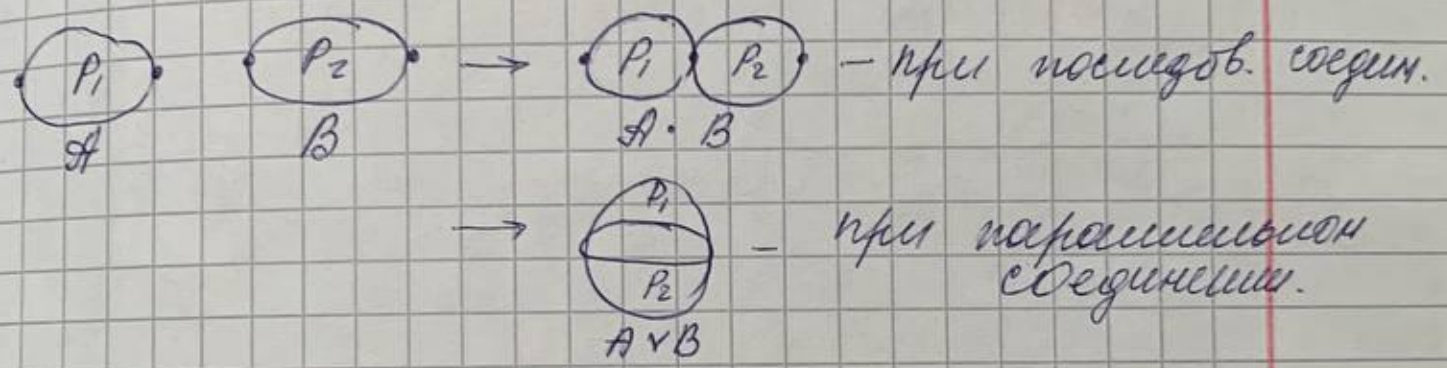 P₁ P₂ → P₁ P₂ – при последов. соедин.
A B A · B
→ P₁ – при параллельном
P₂ соединении.
A ∨ B